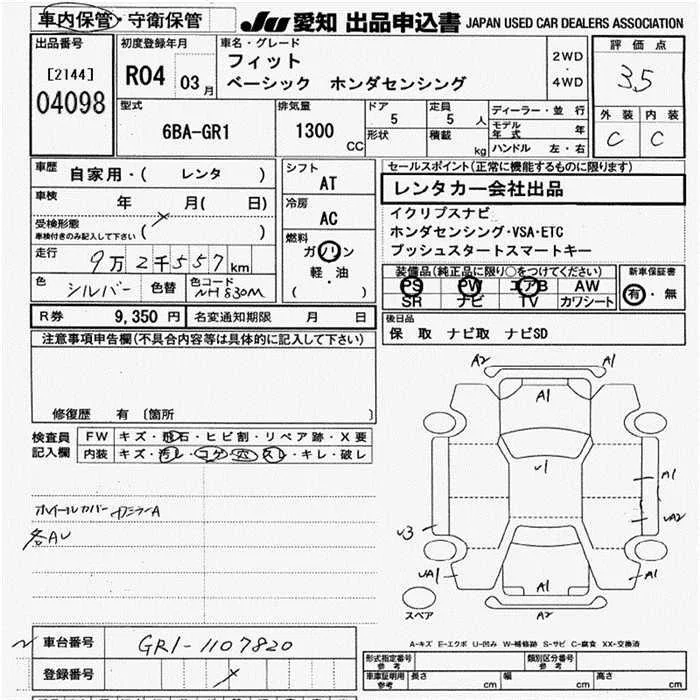 車内保管・守衛保管
JU 愛知 出品申込書 JAPAN USED CAR DEALERS ASSOCIATION
出品番号
[2144]
04098
初度登録年月
R04 03月
車名・グレード
フィット
ベーシック ホンダセンシング
2WD
・
4WD
評価点
3.5
外装 内装
C C
型式
6BA-GR1
排気量
1300 CC
ドア
5
形状
定員
5 人
積載
kg
ディーラー・並行
モデル年式 年
ハンドル 左・右
車歴
自家用・( レンタ )
車検 年 月( 日)
受検形態
車検付きのみ記入して下さい ( )
走行 9万2千557km
色 シルバー 色替 色コード NH830M
シフト
AT
冷房
AC
燃料
ガソリン
軽・油
( )
セールスポイント(正常に機能するものに限ります)
レンタカー会社出品
イクリプスナビ
ホンダセンシング・VSA・ETC
プッシュスタートスマートキー
装備品(純正品に限り○をつけてください)
PS PW エアB AW
SR ナビ TV カワシート
新車保証書
有・無
R券 9,350 円 名変通知期限 月 日
後日品
保 取 ナビ取 ナビSD
注意事項申告欄(不具合内容等は具体的に記入して下さい)
修復歴 有 〔箇所 〕
検査員
記入欄
FW キズ・飛石・ヒビ割・リペア跡・X要
内装 キズ・汚レ・コゲ・穴・スレ・キレ・破レ
ホイールカバー
各AU
A2 A1
A1
U1
A1
UA2
U3
UA1
A1
A1
A2
スペア
A-キズ E-エクボ U-凹み W-補修跡 S-サビ C-腐食 XX-交換済
車台番号 GR1-1107820
登録番号
形式指定番号
参考
類別区分番号
参考
車庫証明用
参考
長さ cm 幅 cm 高さ cm